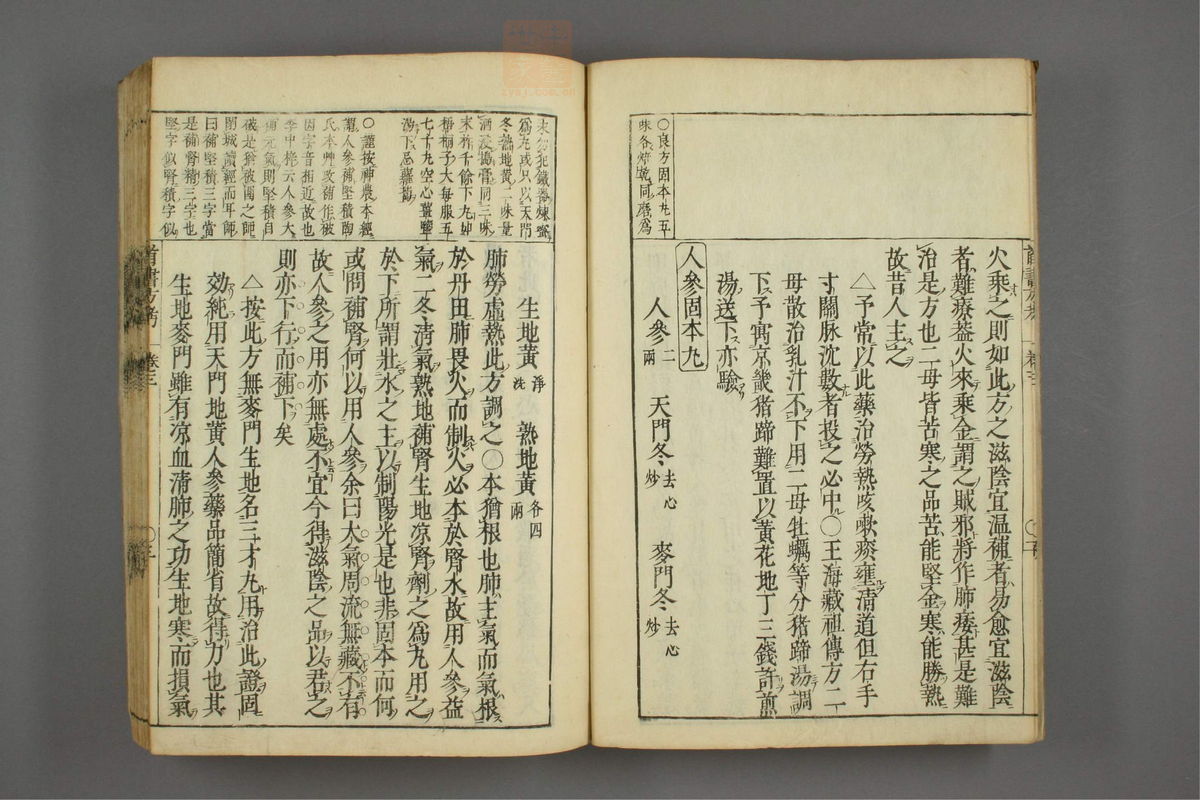 〇良方固本丸五
味各焙乾同磨爲
火乘之則如此方之滋陰宜温補者易愈宜滋陰
者難療蓋火來乘金謂之賊邪將作肺痿甚是難
治是方也二母皆苦寒之品苦能堅金寒能勝熱
故昔人主之
△予常以此藥治勞熱咳嗽痰壅清道但右手
寸關脉沈數者投之必中〇王海藏祖傳方二
母散治乳汁不下用二母牡蠣等分猪蹄湯調
下予寓京畿猪蹄難置以黄花地丁三錢許煎
湯送下亦驗
人參固本丸
人參二兩 天門冬去心炒 麥門冬去心炒
末勿犯鐵器煉蜜
爲丸或只以天門
冬熟地黄二味量
酒浸搗膏同三味
末杵千餘下丸如
梧桐子大每服五
七十丸空心薑鹽
湯下忌蘿蔔
〇謹按神農本經
謂人參補堅積陶
氏本艸改補作破
因字音相近故也
李中梓云人參大
補元氣則堅積自
破是
閉城讀經而耳師
曰補堅積三字當
是補腎精三字也
堅字似腎積字似
生地黄淨洗 熟地黄各四兩
肺勞虛熱此方調之〇本猶根也肺主氣而氣根
於丹田肺畏火而制火必本於腎水故用人參益
氣二冬清氣熟地補腎生地凉腎劑之爲丸用之
於下所謂壯水之主以制陽光是也非固本而何
或問補腎何以用人參余曰大氣周流無藏不有
故人參之用亦無處不宜今得滋陰之品以君之
則亦下行而補下矣
△按此方無麥門生地名三才丸用治此證固
効純用天門地黄人參藥品簡省故得力也其
生地麥門雖有凉血清肺之功生地寒而損氣
首書方考 卷三